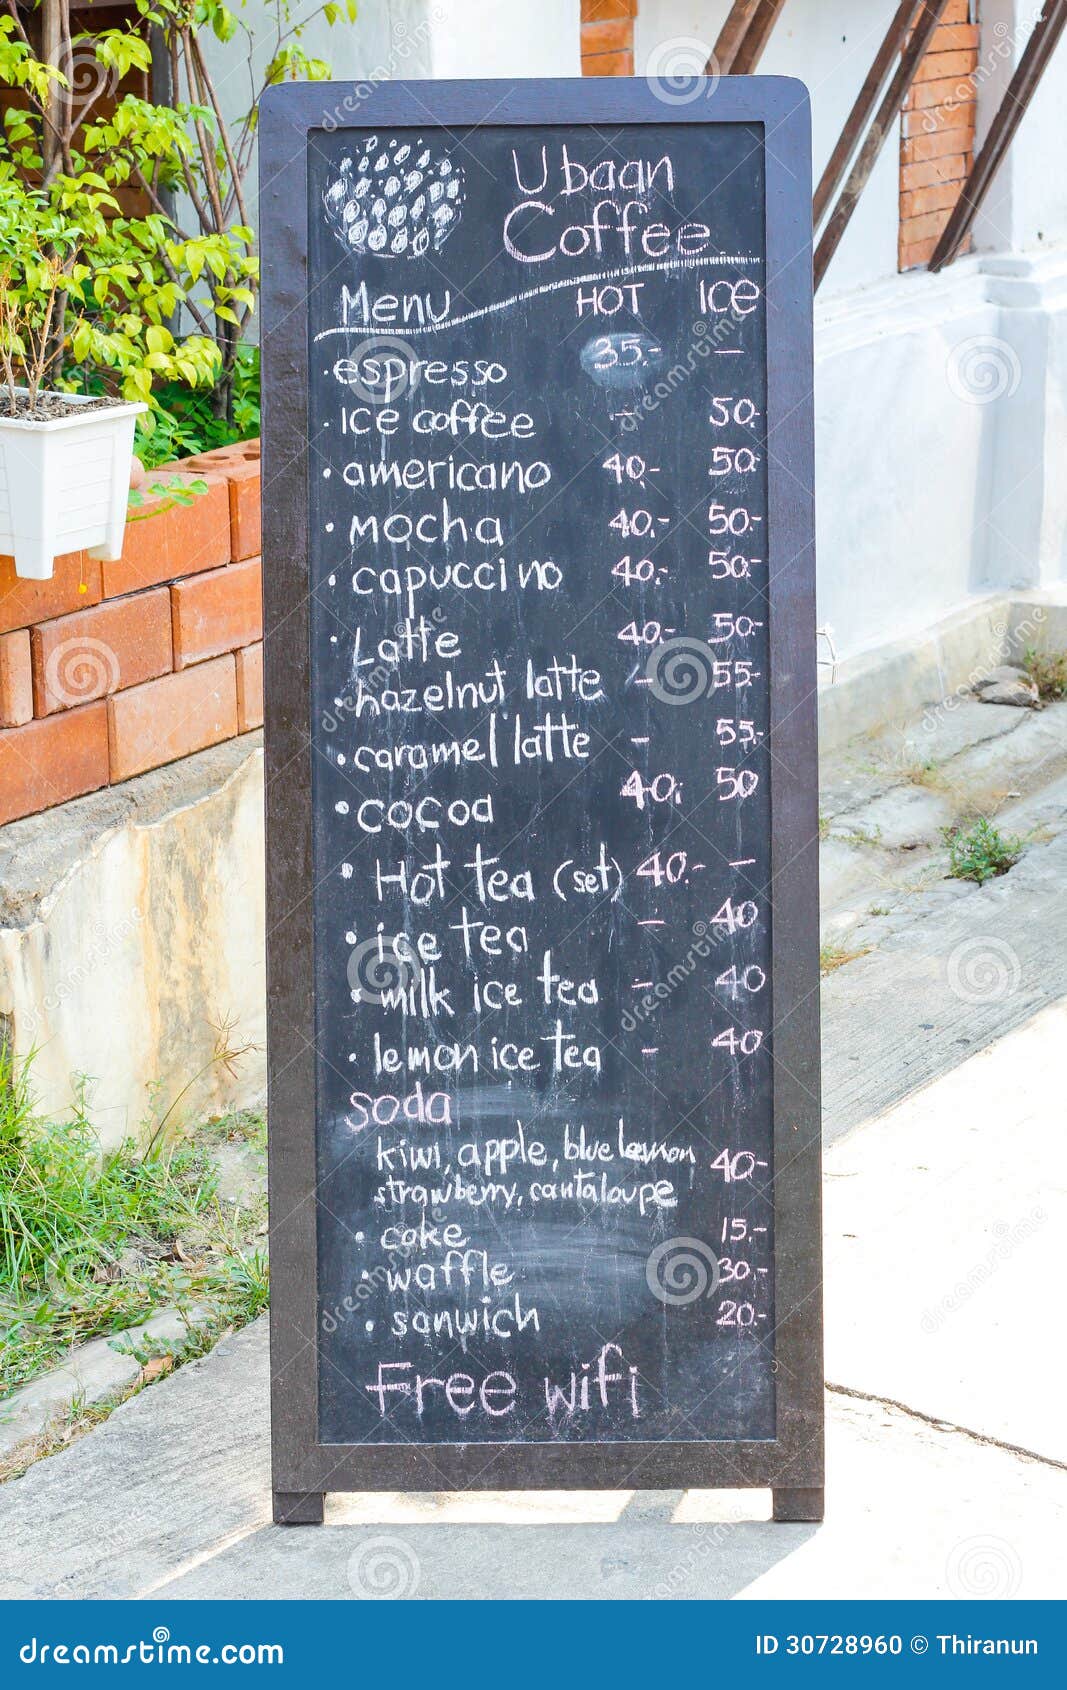 Ubaan
Coffee
Menu HOT ICe
·espresso 35.- —
·Ice coffee - 50.-
·americano 40.- 50-
·Mocha 40.- 50.-
·capuccino 40.- 50.-
·Latte 40.- 50.-
·hazelnut latte - 55-
·caramel latte - 55.-
·cocoa 40. 50
·Hot tea (set) 40.- —
·ice tea - 40
·milk ice tea - 40
·lemon ice tea - 40
Soda
kiwi, apple, blue lemon 40.-
strawberry, cantaloupe
·coke 15.-
·waffle 30.-
·sanwich 20.-
Free wifi
dreamstime.com ID 30728960 © Thiranun